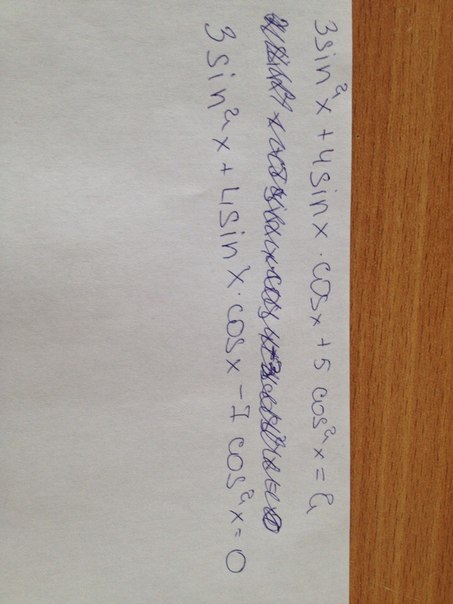 3sin²x + 4sinx · cosx + 5cos²x = 2
3sin²x + 4sinx · cosx - 7cos²x = 0